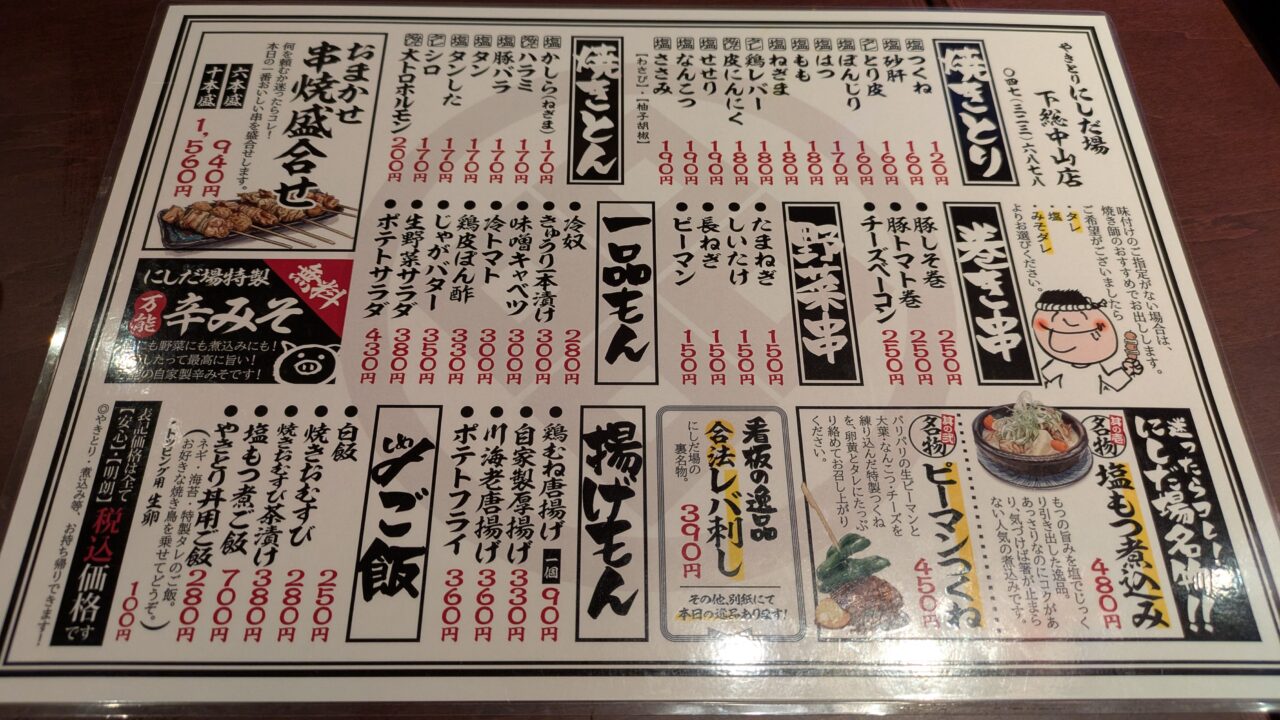 やきとりにしだ場
下総中山店
〇四七(三二三)六八七八
味付けのご指定がない場合は、
焼き師のおすすめでお出しします。
ご希望がございましたら
・タレ
・塩
・みそダレ
よりお選びください。
焼きとり
塩 つくね 120円
塩 砂肝 160円
タレ とり皮 160円
塩 ぼんじり 160円
塩 はつ 170円
塩 もも 180円
塩 ねぎま 180円
タレ 鶏レバー 180円
皮にんにく 180円
塩 せせり 190円
塩 なんこつ 190円
塩 ささみ 190円
【わさび】・【柚子胡椒】
焼きとん
塩 かしら(ねぎま) 170円
ハラミ 170円
塩 豚バラ 170円
塩 タン 170円
塩 タンした 170円
タレ シロ 170円
大トロホルモン 200円
おまかせ
串焼盛合せ
何を頼むか迷ったらコレ!
本日の一番おいしい串を盛合せします。
六本盛 940円
十本盛 1,560円
巻き串
●豚しそ巻 250円
●豚トマト巻 250円
●チーズベーコン 250円
野菜串
●たまねぎ 150円
●しいたけ 150円
●長ねぎ 150円
●ピーマン 150円
一品もん
●冷奴 280円
●きゅうり一本漬け 300円
●味噌キャベツ 300円
●冷トマト 300円
●鶏皮ぽん酢 330円
●じゃがバター 350円
●生野菜サラダ 380円
●ポテトサラダ 430円
無料
にしだ場特製
万能 辛みそ
にも野菜にも煮込みにも!
したって最高に旨い!
の自家製辛みそです!
迷ったらコレ!
にしだ場名物!!
其の壱
名物 塩もつ煮込み 480円
もつの旨みを塩でじっく
り引き出した逸品。
あっさりなのにコクがあ
り、気づけば箸が止まら
ない人気の煮込みです。
其の弐
名物 ピーマンつくね 450円
パリパリの生ピーマンと
大葉・なんこつ・チーズを
練り込んだ特製つくね
を、卵黄とタレにたっぷ
り絡めてお召し上がり
ください。
看板の逸品
合法レバ刺し
にしだ場の
裏名物。
390円
その他、別紙にて
本日の逸品あります!
揚げもん
●鶏むね唐揚げ 一個 90円
●自家製厚揚げ 330円
●川海老唐揚げ 360円
●ポテトフライ 360円
〆ご飯
●白飯 250円
●焼きおむすび 280円
●焼きおむすび茶漬け 380円
●塩もつ煮ご飯 700円
●やきとり丼用ご飯 280円
(ネギ・海苔・特製タレのご飯。
お好きな焼き鳥を乗せてどうぞ。)
トッピング用 生卵 100円
表記価格は全て
【安心】・【明朗】税込価格です
◎やきとり・煮込み等、お持ち帰りできます!